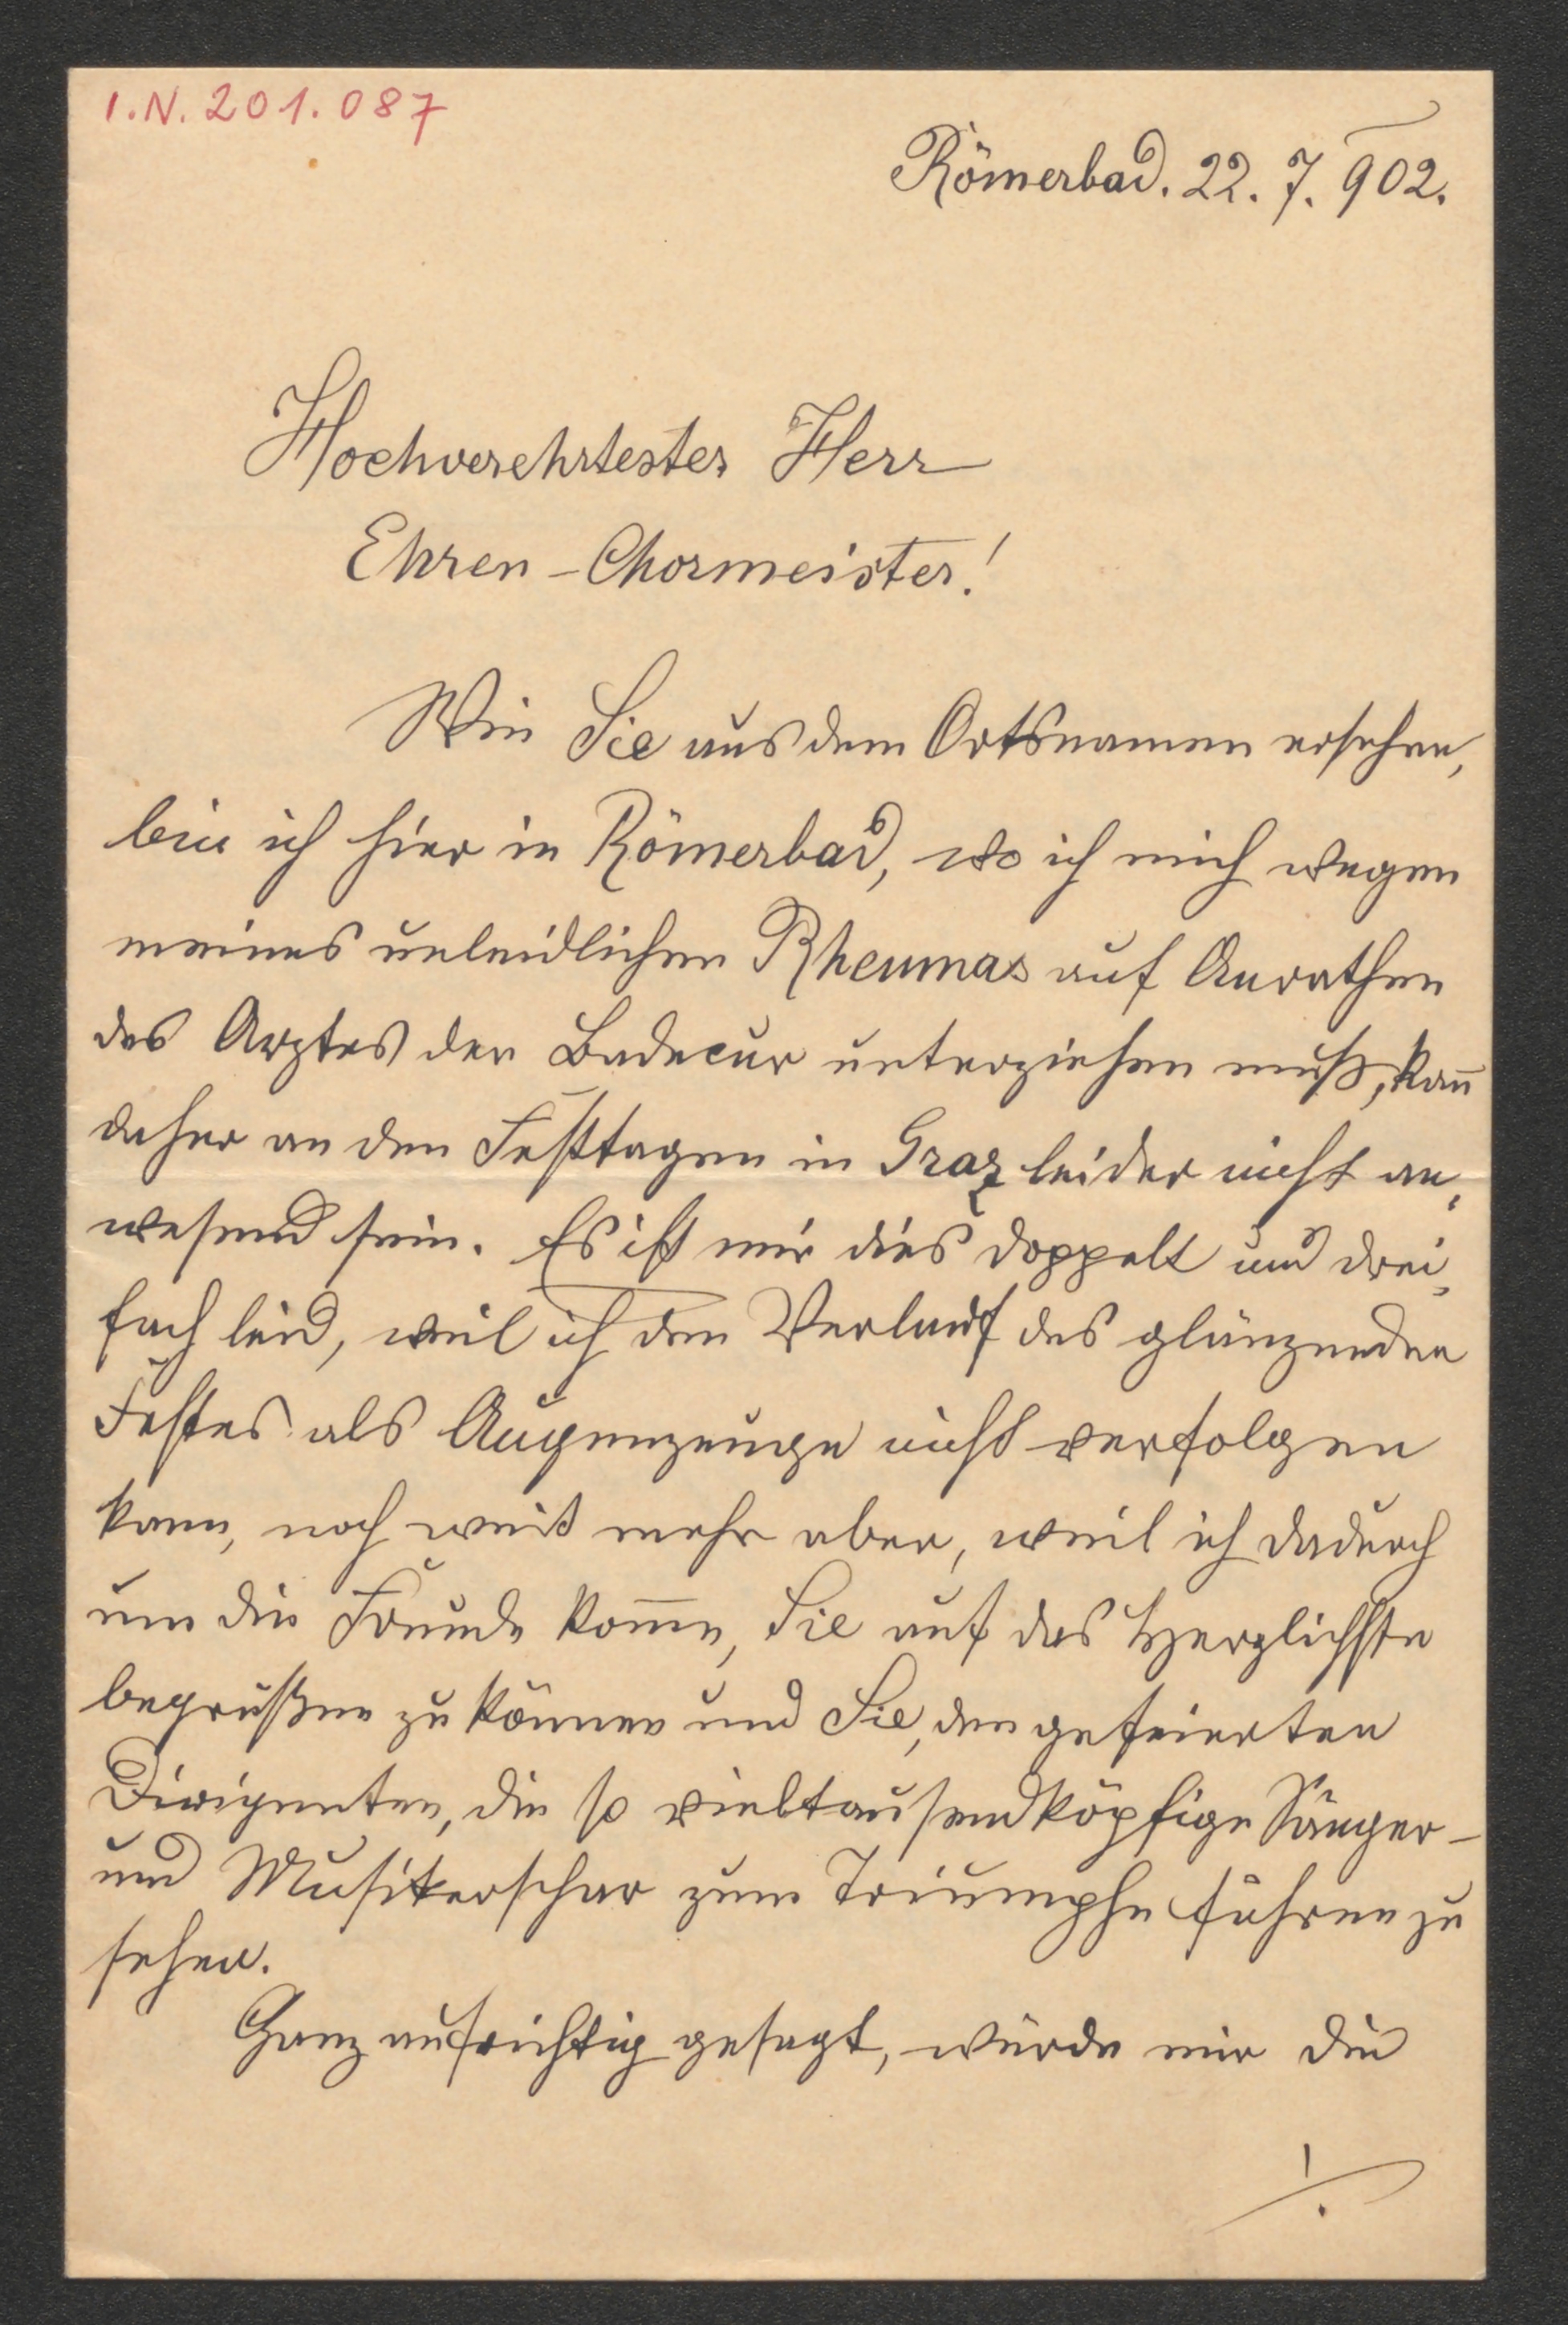 I.N. 201.087
Römerbad. 22. 7. 902.
Hochverehrtester Herr
Ehren-Chormeister!
Wie Sie aus dem Ortsnamen ersehen,
bin ich hier in Römerbad, wo ich mich wegen
meines unleidlichen Rheumas auf Anrathen
des Arztes der Badecur unterziehen muß, kañ
daher an den Festtagen in Graz leider nicht an-
wesend sein. Es ist mir dies doppelt und drei-
fach leid, weil ich den Verlauf des glänzenden
Festes als Augenzeuge nicht verfolgen
kann, noch weit mehr aber, weil ich dadurch
um die Freude kom̄e, Sie auf das Herzlichste
begrüßen zu können und Sie, den gefeierten
Dirigenten, die so vieltausendköpfige Sänger-
und Musikerschar zum Triumphe führen zu
sehen.
Ganz aufrichtig gesagt, würde mir die
./.